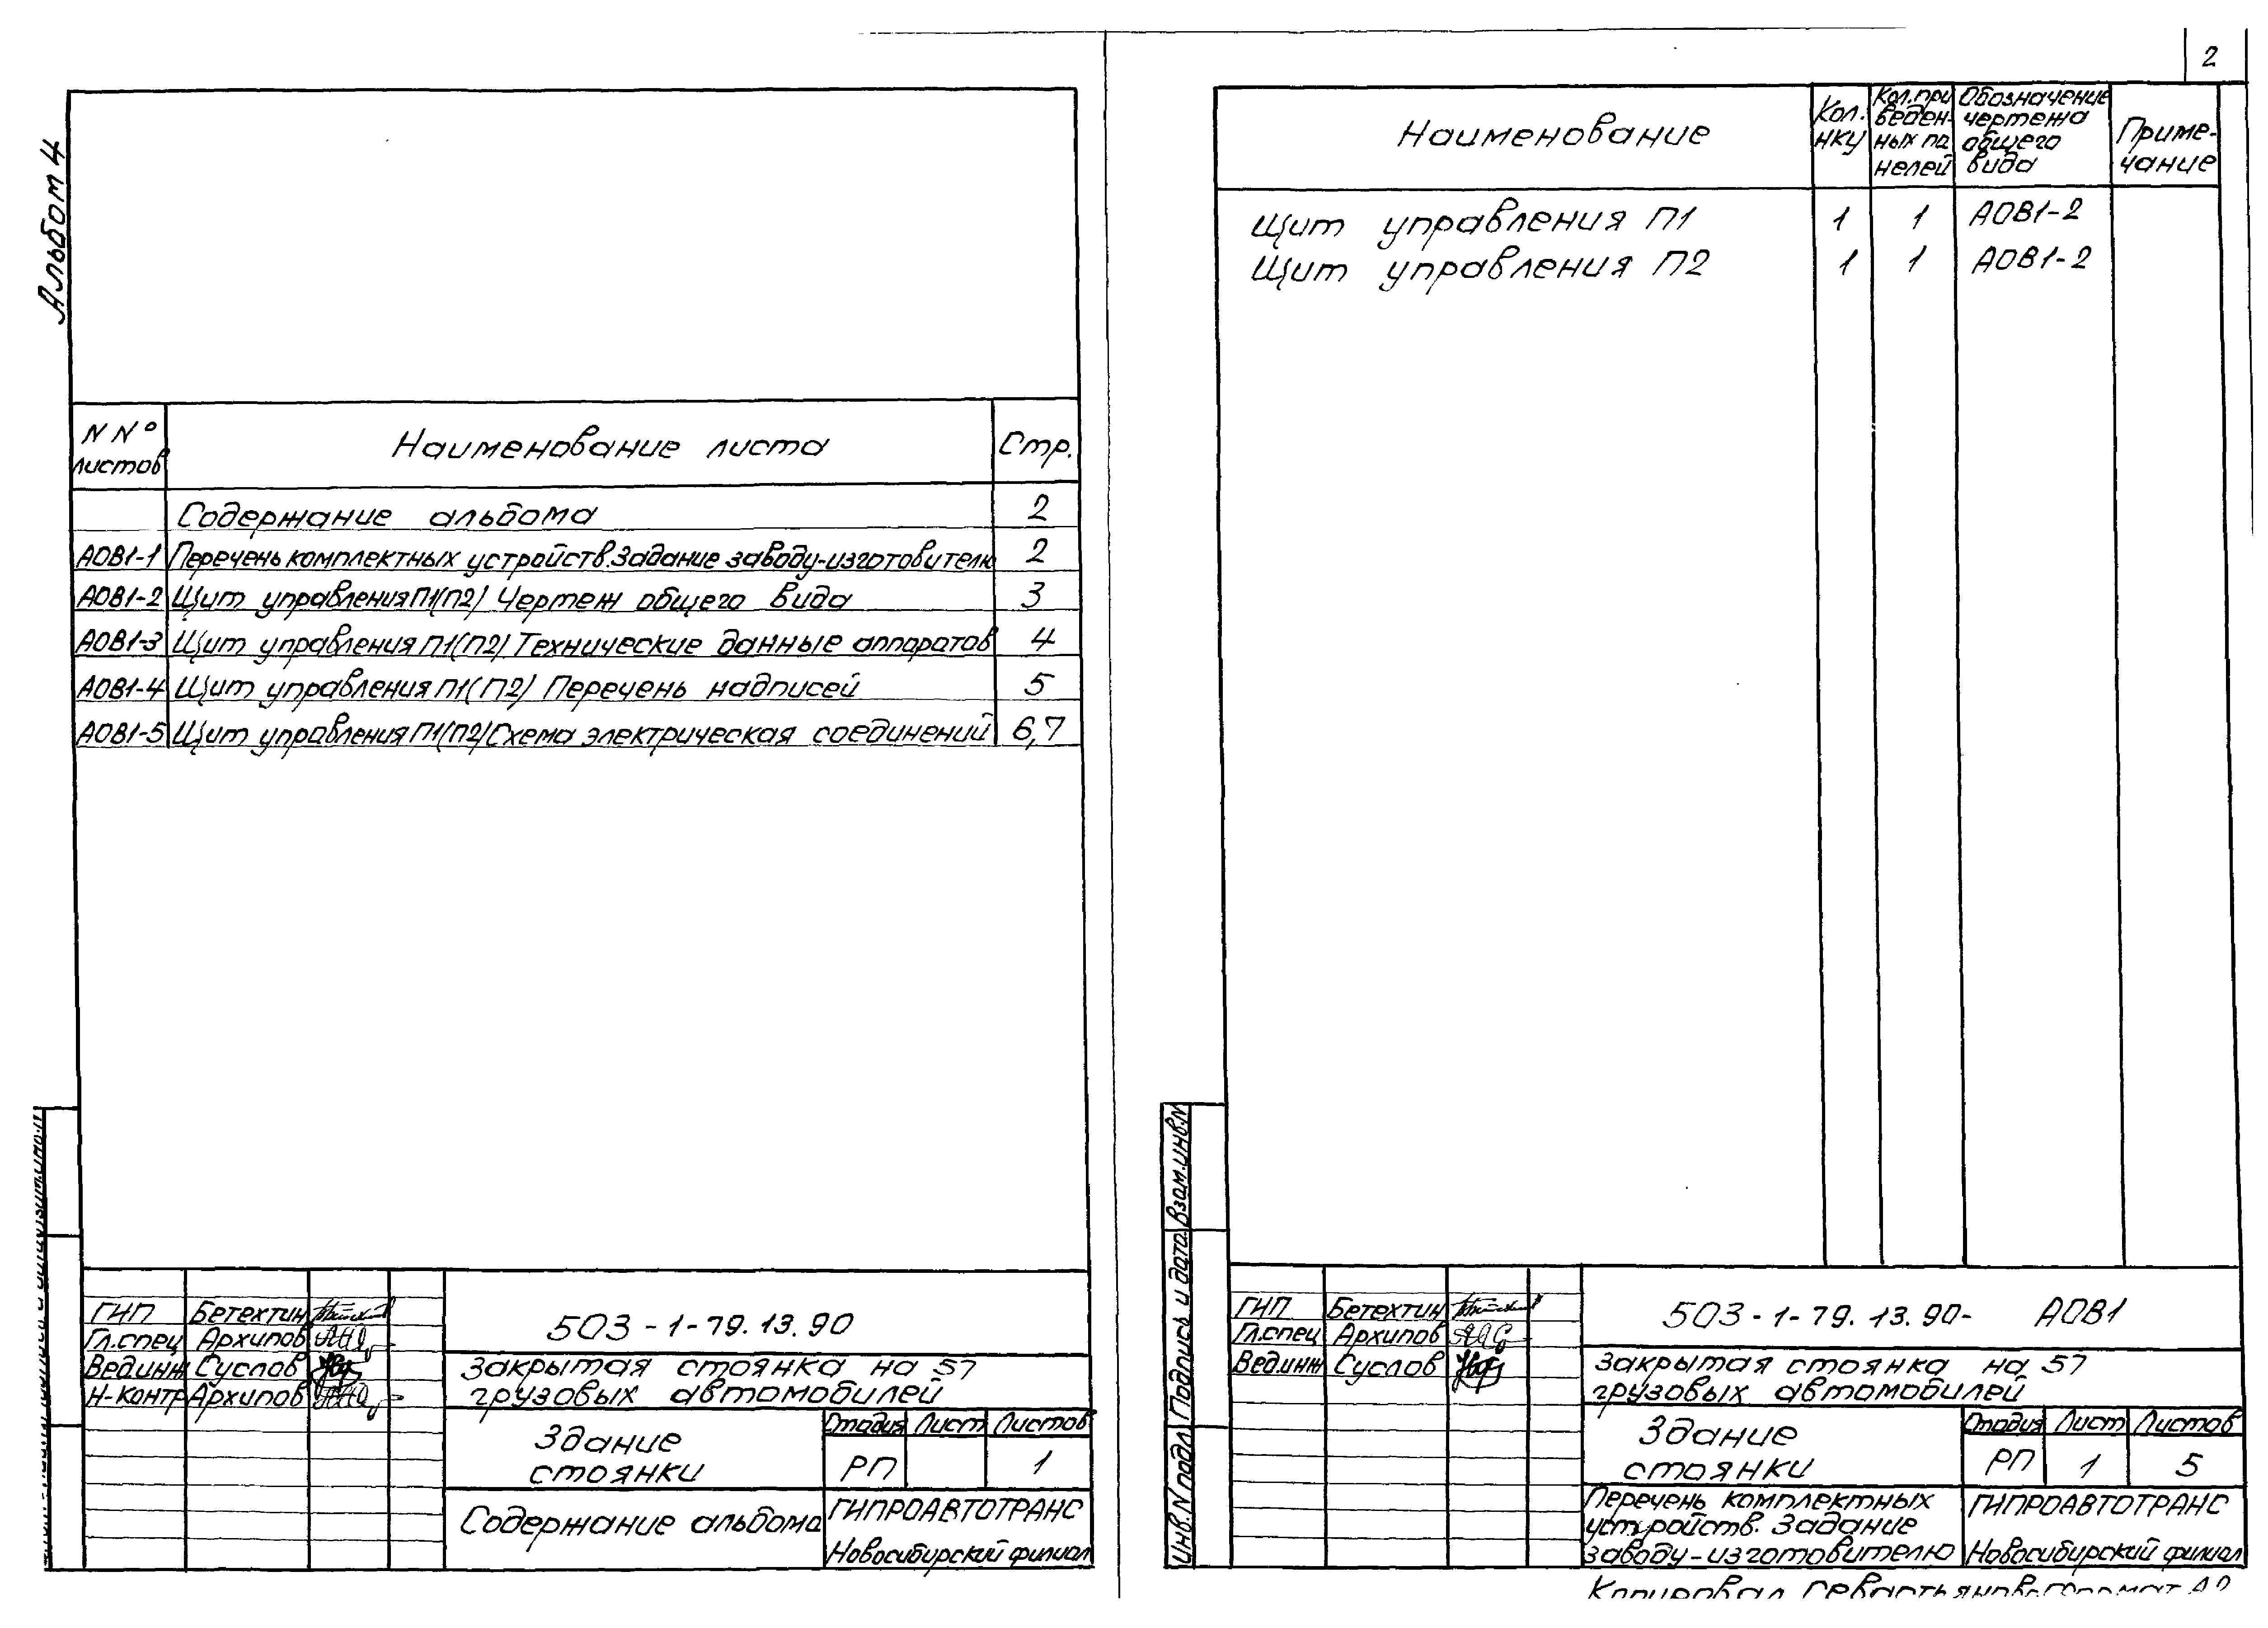 2
Альбом 4
NN° листов Наименование листа Стр.
Содержание альбома 2
АОВ1-1 Перечень комплектных устройств. Задание заводу-изготовителю 2
АОВ1-2 Щит управления П1(П2) Чертеж общего вида 3
АОВ1-3 Щит управления П1(П2). Технические данные аппаратов 4
АОВ1-4 Щит управления П1(П2) Перечень надписей 5
АОВ1-5 Щит управления П1(П2) Схема электрическая соединений 6,7
ГИП Бетехтин
Гл.спец Архипов
Вед.инж Суслов
Н-контр Архипов
503-1-79.13.90
Закрытая стоянка на 57
грузовых автомобилей
Здание
стоянки
Стадия Лист Листов
РП 1
Содержание альбома
ГИПРОАВТОТРАНС
Новосибирский филиал
Наименование
Кол.
НКУ
Кол. при
веден-
ных па
нелей
Обозначение
чертежа
общего
вида
Приме-
чание
Щит управления П1 1 1 АОВ1-2
Щит управления П2 1 1 АОВ1-2
Взам.инв.N
Подпись и дата
Инв.N подл
ГИП Бетехтин
Гл.спец Архипов
Вед.инж Суслов
503-1-79.13.90- АОВ1
Закрытая стоянка на 57
грузовых автомобилей
Здание
стоянки
Стадия Лист Листов
РП 1 5
Перечень комплектных
устройств. Задание
заводу-изготовителю
ГИПРОАВТОТРАНС
Новосибирский филиал
Копировал